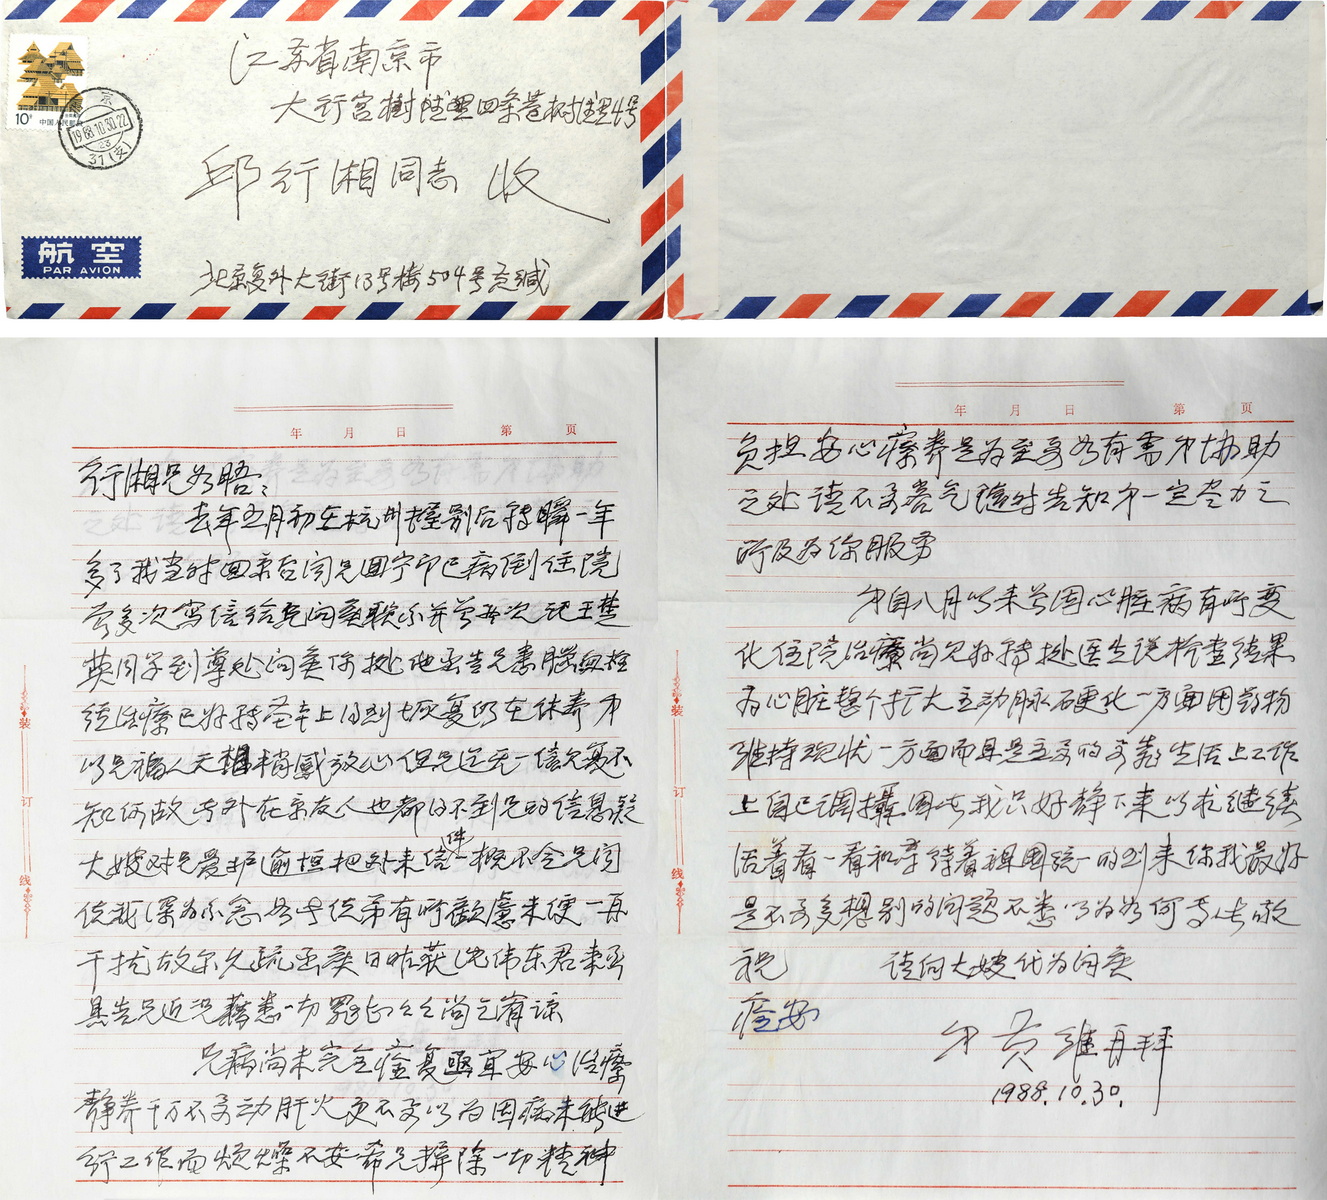 江苏省南京市
大行宫树德里四条巷树德里4号
邱行湘同志 收
10分 中国人民邮政
南京
1988.10.30.22
23
31(支)
航空
PAR AVION
北京复外大街13号楼504号黄缄
年 月 日 第 页
行湘兄如晤：
去年五月初在杭州握别后转瞬一年
多了我当时回京后闻兄回宁即已病倒住院
曾多次写信给兄问候联系并曾两次托王楚
英同学到尊处问候你据他函告兄患脑血栓
经治疗已好转基本上得到恢复仍在休养中
以兄福人天相稍感放心但兄迄无一信见复不
知何故另外在京友人也都得不到兄的信息疑
大嫂对兄爱护逾恒把外来信件一概不令兄阅
使我深为系念如此使弟有所顾虑未便一再
干扰故尔久疏函候日昨获沈伟东君来函
具告兄近况藉悉一切
尚乞宥谅
兄病尚未完全痊复亟宜安心治疗
静养千万不要动肝火更不要以为因病未能进
行工作而烦燥不安希兄摒除一切精神
装
订
线
年 月 日 第 页
负担安心疗养是为至要如有需弟协助
之处请不要客气随时告知弟一定尽力之
所及为你服劳
弟自八月以来曾因心脏病有所变
化住院治疗尚见好转据医生说检查结果
为心脏整个扩大主动脉硬化一方面用药物
维持现状一方面而且是主要的要靠生活上工作
上自己调摄因此我只好静下来以求继续
活着看一看和等待着祖国统一的到来你我最好
是不要多想别的问题不悉以为如何专此敬
祝 请向大嫂代为问候
痊安
弟 黄维再拜
1988.10.30.
装
订
线